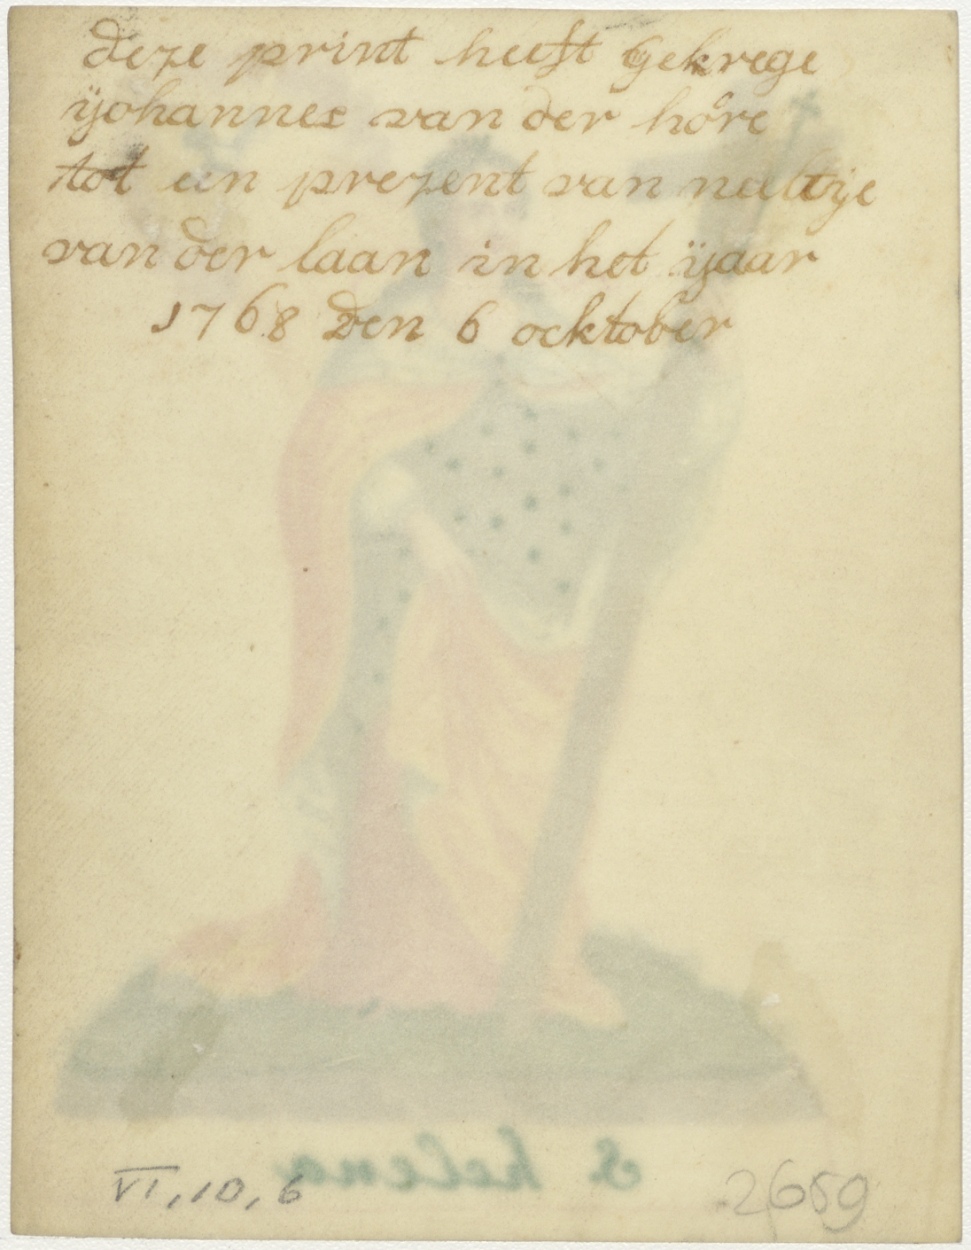 deze print heeft gekrege
ÿohannes van der hôre
tot een prezent van neeltÿe
van der laan in het ÿaar
1768 den 6 ocktober
S helena
VI, 10, 6
2659